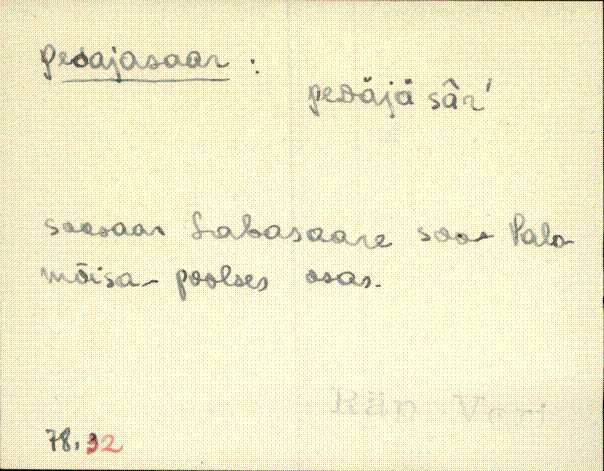 pedajasaar :
pedäjä sâr'
soosaar Labasaare soo Palo
mõisa poolses osas.
Rän Veri
78.32